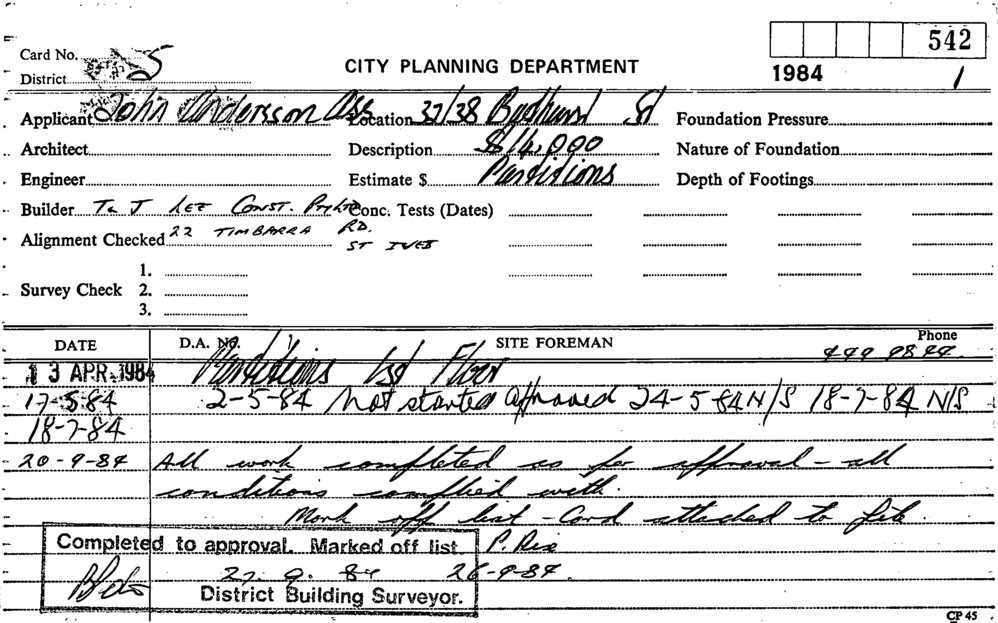 542
Card No. 5
District
CITY PLANNING DEPARTMENT
1984 1
Applicant John Andersson Ass Location 37/38 St Foundation Pressure
Architect Description $14,000 Nature of Foundation
Engineer Estimate $ Partitions Depth of Footings
Builder T & J LEE CONST. Pty Ltd Conc. Tests (Dates)
Alignment Checked 22 TIMBARRA RD.
ST IVES
1.
Survey Check 2.
3.
DATE D.A. No. SITE FOREMAN Phone
449 9844
13 APR 1984 Partitions 1st Floor
17-5-84 2-5-84 Not started approved 24-5-84 N/S 18-7-84 N/S
18-7-84
20-9-84 All work completed as per approval - all
conditions complied with.
Mark off list - Card attached to file.
Completed to approval. Marked off list P. Rix
27. 9. 84 26-9-84.
District Building Surveyor.
CP 45